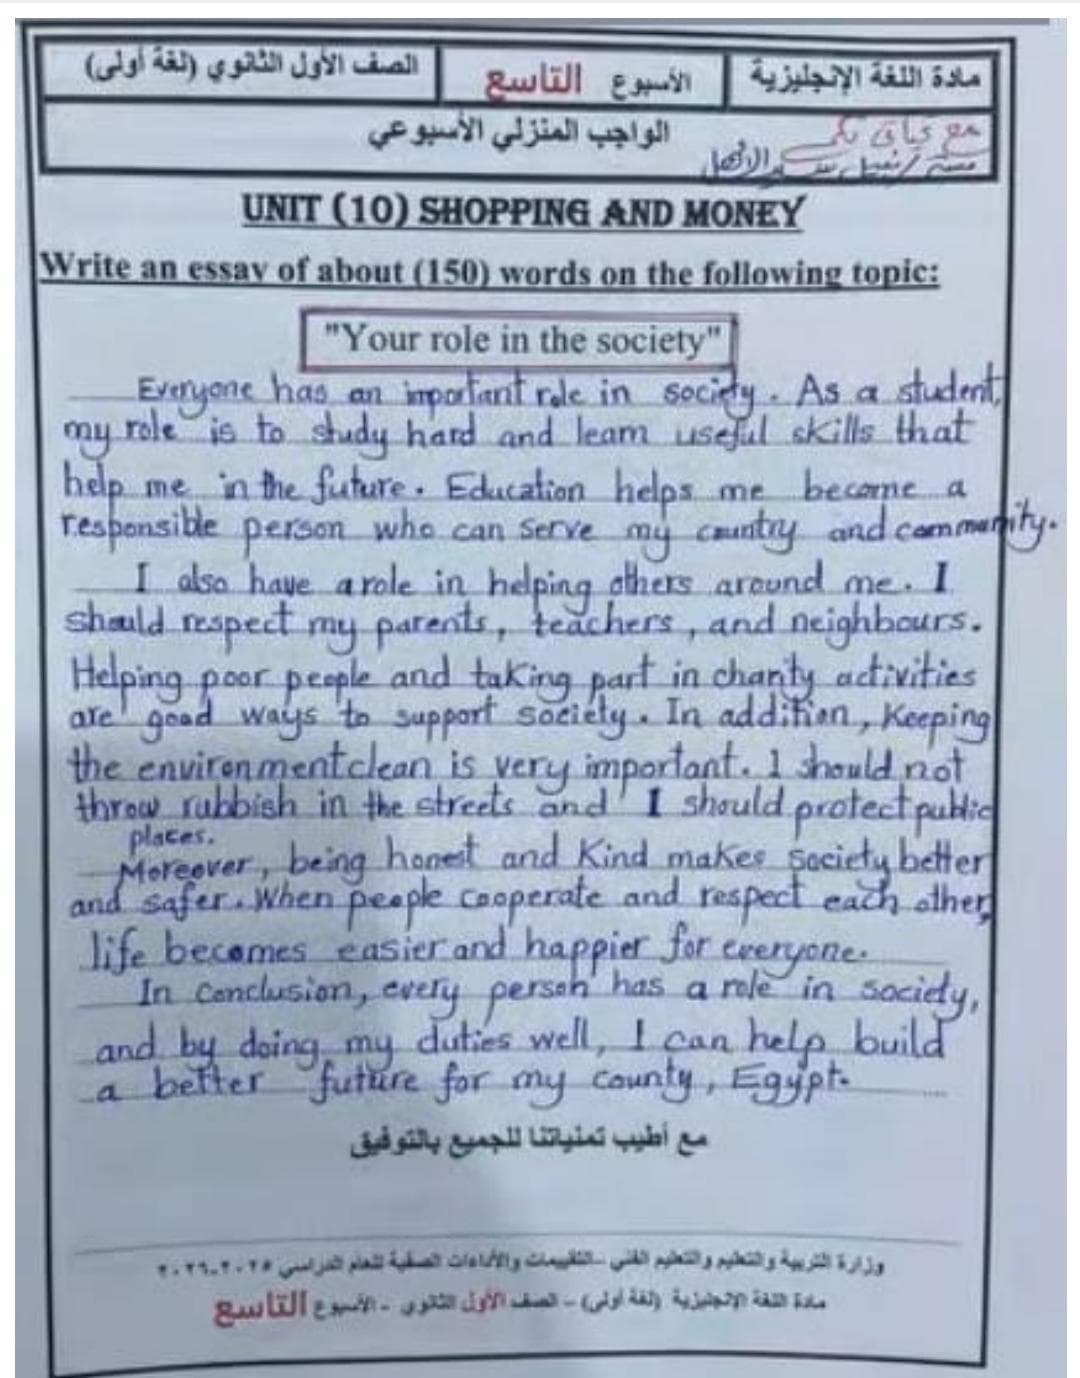 مادة اللغة الإنجليزية
الأسبوع التاسع
الصف الأول الثانوي (لغة أولى)
الواجب المنزلي الأسبوعي
UNIT (10) SHOPPING AND MONEY
Write an essay of about (150) words on the following topic:
"Your role in the society"
Everyone has an important role in society. As a student,
my role is to study hard and learn useful skills that
help me in the future. Education helps me become a
responsible person who can serve my country and community.
I also have a role in helping others around me. I
should respect my parents, teachers, and neighbours.
Helping poor people and taking part in charity activities
are good ways to support society. In addition, Keeping
the environment clean is very important. I should not
throw rubbish in the streets and I should protect public
places.
Moreover, being honest and Kind makes society better
and safer. When people cooperate and respect each other,
life becomes easier and happier for everyone.
In Conclusion, every person has a role in society,
and by doing my duties well, I can help build
a better future for my county, Egypt.
مع أطيب تمنياتنا للجميع بالتوفيق
وزارة التربية والتعليم والتعليم الفني - التقييمات والأداءات الصفية للعام الدراسي ٢٠٢٥-٢٠٢٦
مادة اللغة الإنجليزية (لغة أولى) - الصف الأول الثانوي - الأسبوع التاسع